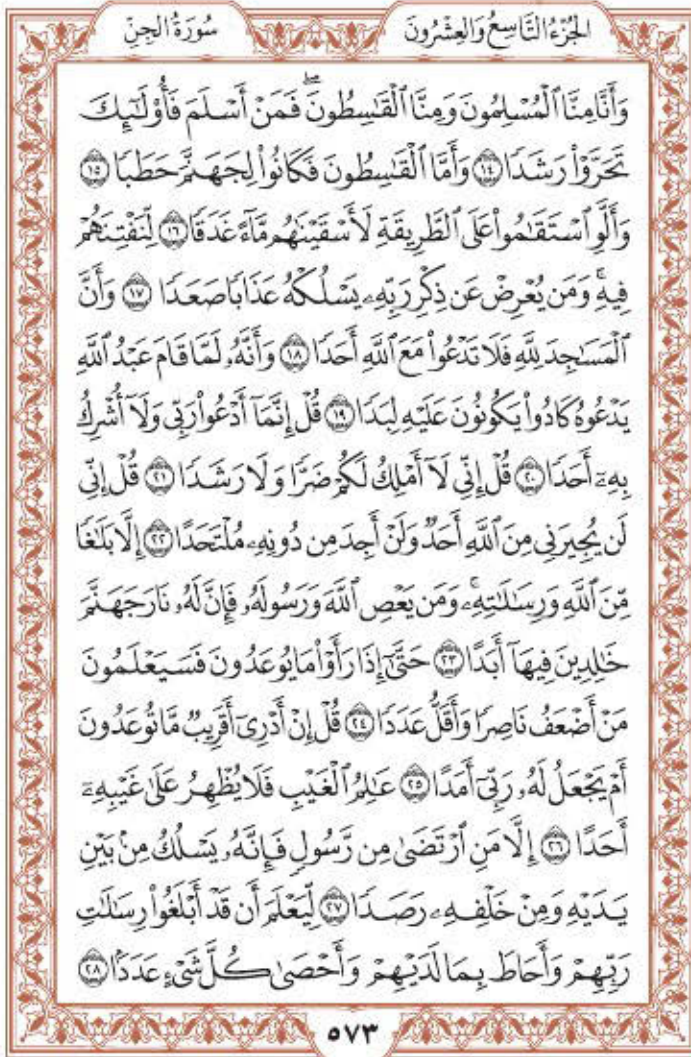 الجُزْءُ التَّاسِعُ وَالعِشْرُونَ
سُورَةُ الجِنِّ
وَأَنَّا مِنَّا ٱلْمُسْلِمُونَ وَمِنَّا ٱلْقَـٰسِطُونَۖ فَمَنْ أَسْلَمَ فَأُو۟لَـٰٓئِكَ
تَحَرَّوْا۟ رَشَدًا ١٤ وَأَمَّا ٱلْقَـٰسِطُونَ فَكَانُوا۟ لِجَهَنَّمَ حَطَبًا ١٥
وَأَلَّوِ ٱسْتَقَـٰمُوا۟ عَلَى ٱلطَّرِيقَةِ لَأَسْقَيْنَـٰهُم مَّآءً غَدَقًا ١٦ لِّنَفْتِنَهُمْ
فِيهِۚ وَمَن يُعْرِضْ عَن ذِكْرِ رَبِّهِۦ يَسْلُكْهُ عَذَابًا صَعَدًا ١٧ وَأَنَّ
ٱلْمَسَـٰجِدَ لِلَّهِ فَلَا تَدْعُوا۟ مَعَ ٱللَّهِ أَحَدًا ١٨ وَأَنَّهُۥ لَمَّا قَامَ عَبْدُ ٱللَّهِ
يَدْعُوهُ كَادُوا۟ يَكُونُونَ عَلَيْهِ لِبَدًا ١٩ قُلْ إِنَّمَآ أَدْعُوا۟ رَبِّى وَلَآ أُشْرِكُ
بِهِۦٓ أَحَدًا ٢٠ قُلْ إِنِّى لَآ أَمْلِكُ لَكُمْ ضَرًّا وَلَا رَشَدًا ٢١ قُلْ إِنِّى
لَن يُجِيرَنِى مِنَ ٱللَّهِ أَحَدٌ وَلَنْ أَجِدَ مِن دُونِهِۦ مُلْتَحَدًا ٢٢ إِلَّا بَلَـٰغًا
مِّنَ ٱللَّهِ وَرِسَـٰلَـٰتِهِۦۚ وَمَن يَعْصِ ٱللَّهَ وَرَسُولَهُۥ فَإِنَّ لَهُۥ نَارَ جَهَنَّمَ
خَـٰلِدِينَ فِيهَآ أَبَدًا ٢٣ حَتَّىٰٓ إِذَا رَأَوْا۟ مَا يُوعَدُونَ فَسَيَعْلَمُونَ
مَنْ أَضْعَفُ نَاصِرًا وَأَقَلُّ عَدَدًا ٢٤ قُلْ إِنْ أَدْرِىٓ أَقَرِيبٌ مَّا تُوعَدُونَ
أَمْ يَجْعَلُ لَهُۥ رَبِّىٓ أَمَدًا ٢٥ عَـٰلِمُ ٱلْغَيْبِ فَلَا يُظْهِرُ عَلَىٰ غَيْبِهِۦٓ
أَحَدًا ٢٦ إِلَّا مَنِ ٱرْتَضَىٰ مِن رَّسُولٍ فَإِنَّهُۥ يَسْلُكُ مِنۢ بَيْنِ
يَدَيْهِ وَمِنْ خَلْفِهِۦ رَصَدًا ٢٧ لِّيَعْلَمَ أَن قَدْ أَبْلَغُوا۟ رِسَـٰلَـٰتِ
رَبِّهِمْ وَأَحَاطَ بِمَا لَدَيْهِمْ وَأَحْصَىٰ كُلَّ شَىْءٍ عَدَدًۢا ٢٨
٥٧٣